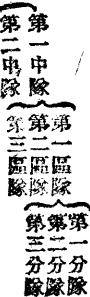 第一中隊
第二中隊
第一區隊
第二區隊
第三區隊
第一分隊
第二分隊
第三分隊